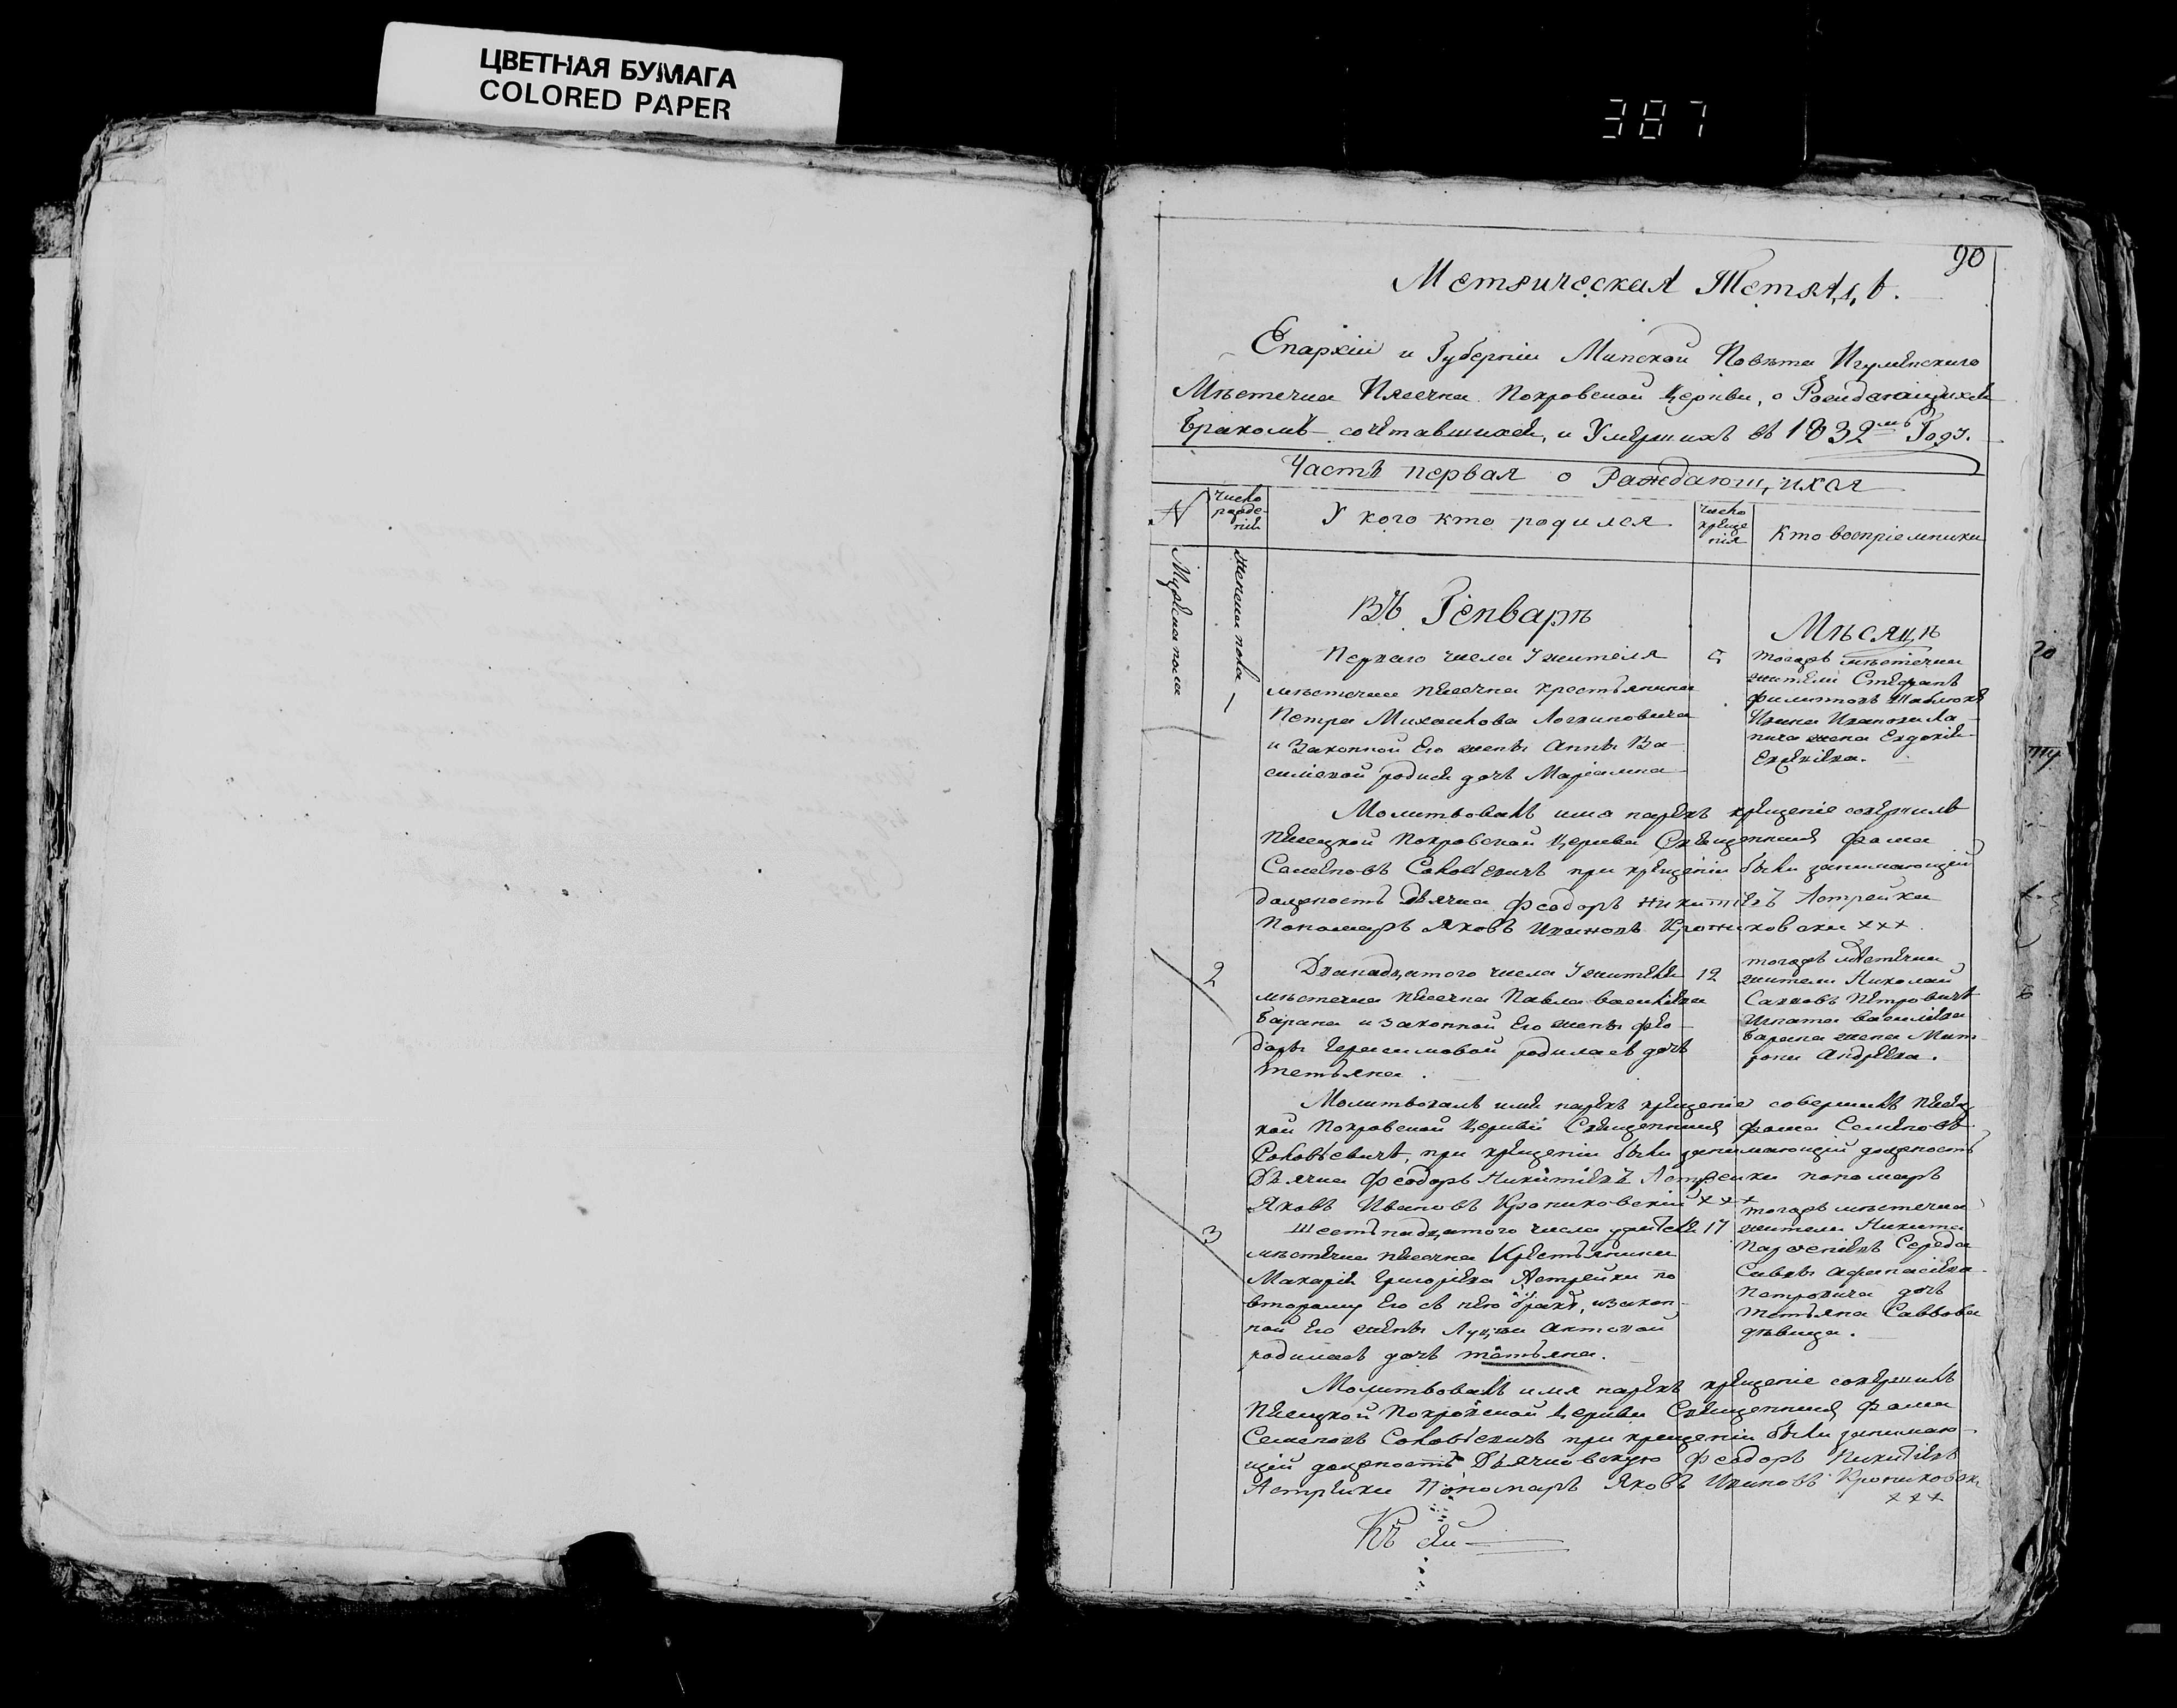 ЦВЕТНАЯ БУМАГА
COLORED PAPER
387
90
Метрическая Тетрадь.
Епархіи и Губерніи Минской Повѣта Игуменского
Мѣстечка Песечна Покровской Церкви, о Рождающихся
Бракомъ сочетавшихся, и Умершихъ въ 1832мъ Году.
Часть первая о Раждающихся
N
число рожде-нія
У кого кто родился
число креще нія
Кто воспріемники
Мужеска пола
Женска пола
Въ Генварѣ
Мѣсяцѣ
Перваго числа У жителя
мѣстечка Песечна крестьянина
Петра Михайлова Логиновича
и Законной Его жены Анны Ва-
силіевой родися дочь Маріанна
5
тогожъ мѣстечка
жители Стефанъ
Филиповъ
Ивана Иванова Ла-
пича жена Евдокія
Молитвовалъ имя нарекъ крещеніе совершилъ
Песецкой Покровской Церкви Священникъ Фома
Семеновъ Соловьевичъ при крещеніи были занимающій
должность Дьячка Феодоръ Никитіевъ Астрейки
Пономаръ Яковъ Ивановъ Крониковски ххх
2
Дванадцатого числа У жителя
мѣстечка Песечна Павла Василіева
Барана и законной Его жены Фео-
доры Герасимовой родилась дочь
Тетьяна.
12
тогожъ мѣстечка
жители Николай
Саввовъ Петровичъ
Игната Василіева
Барана жена Мат
рона Андреева.
Молитвовалъ имя нарекъ крещеніе совершилъ Песец
кой Покровской Церкви Священникъ Фома Семеновъ
Соловьевичъ, при крещеніи были занимающій должность
Дьячка Феодоръ Никитіевъ Астрейки пономаръ
Яковъ Ивановъ Крониковскій ххх
3
Шестьнадцатого числа у жителя
мѣстечка Песечна Крестьянина
Макарія Григоріева Астрейки по
второму Его съ нею браку, и закон-
ной Его жены Луціи Антоновой
родилась дочь Татьяна.
17
тогожъ мѣстечка
жители Никита
Парфеніевъ Середа
Саввы Афанасіева
Петровича дочь
Татьяна Саввова
дѣвица.
Молитвовалъ имя нарекъ крещеніе совершилъ
Песецкой Покровской Церкви Священникъ Фома
Семеновъ Соловьевичъ при крещеніи были занимаю-
щій должность Дьячковскую Феодоръ Никитіевъ
Астрейки Пономаръ Яковъ Ивановъ Крониковски
ххх